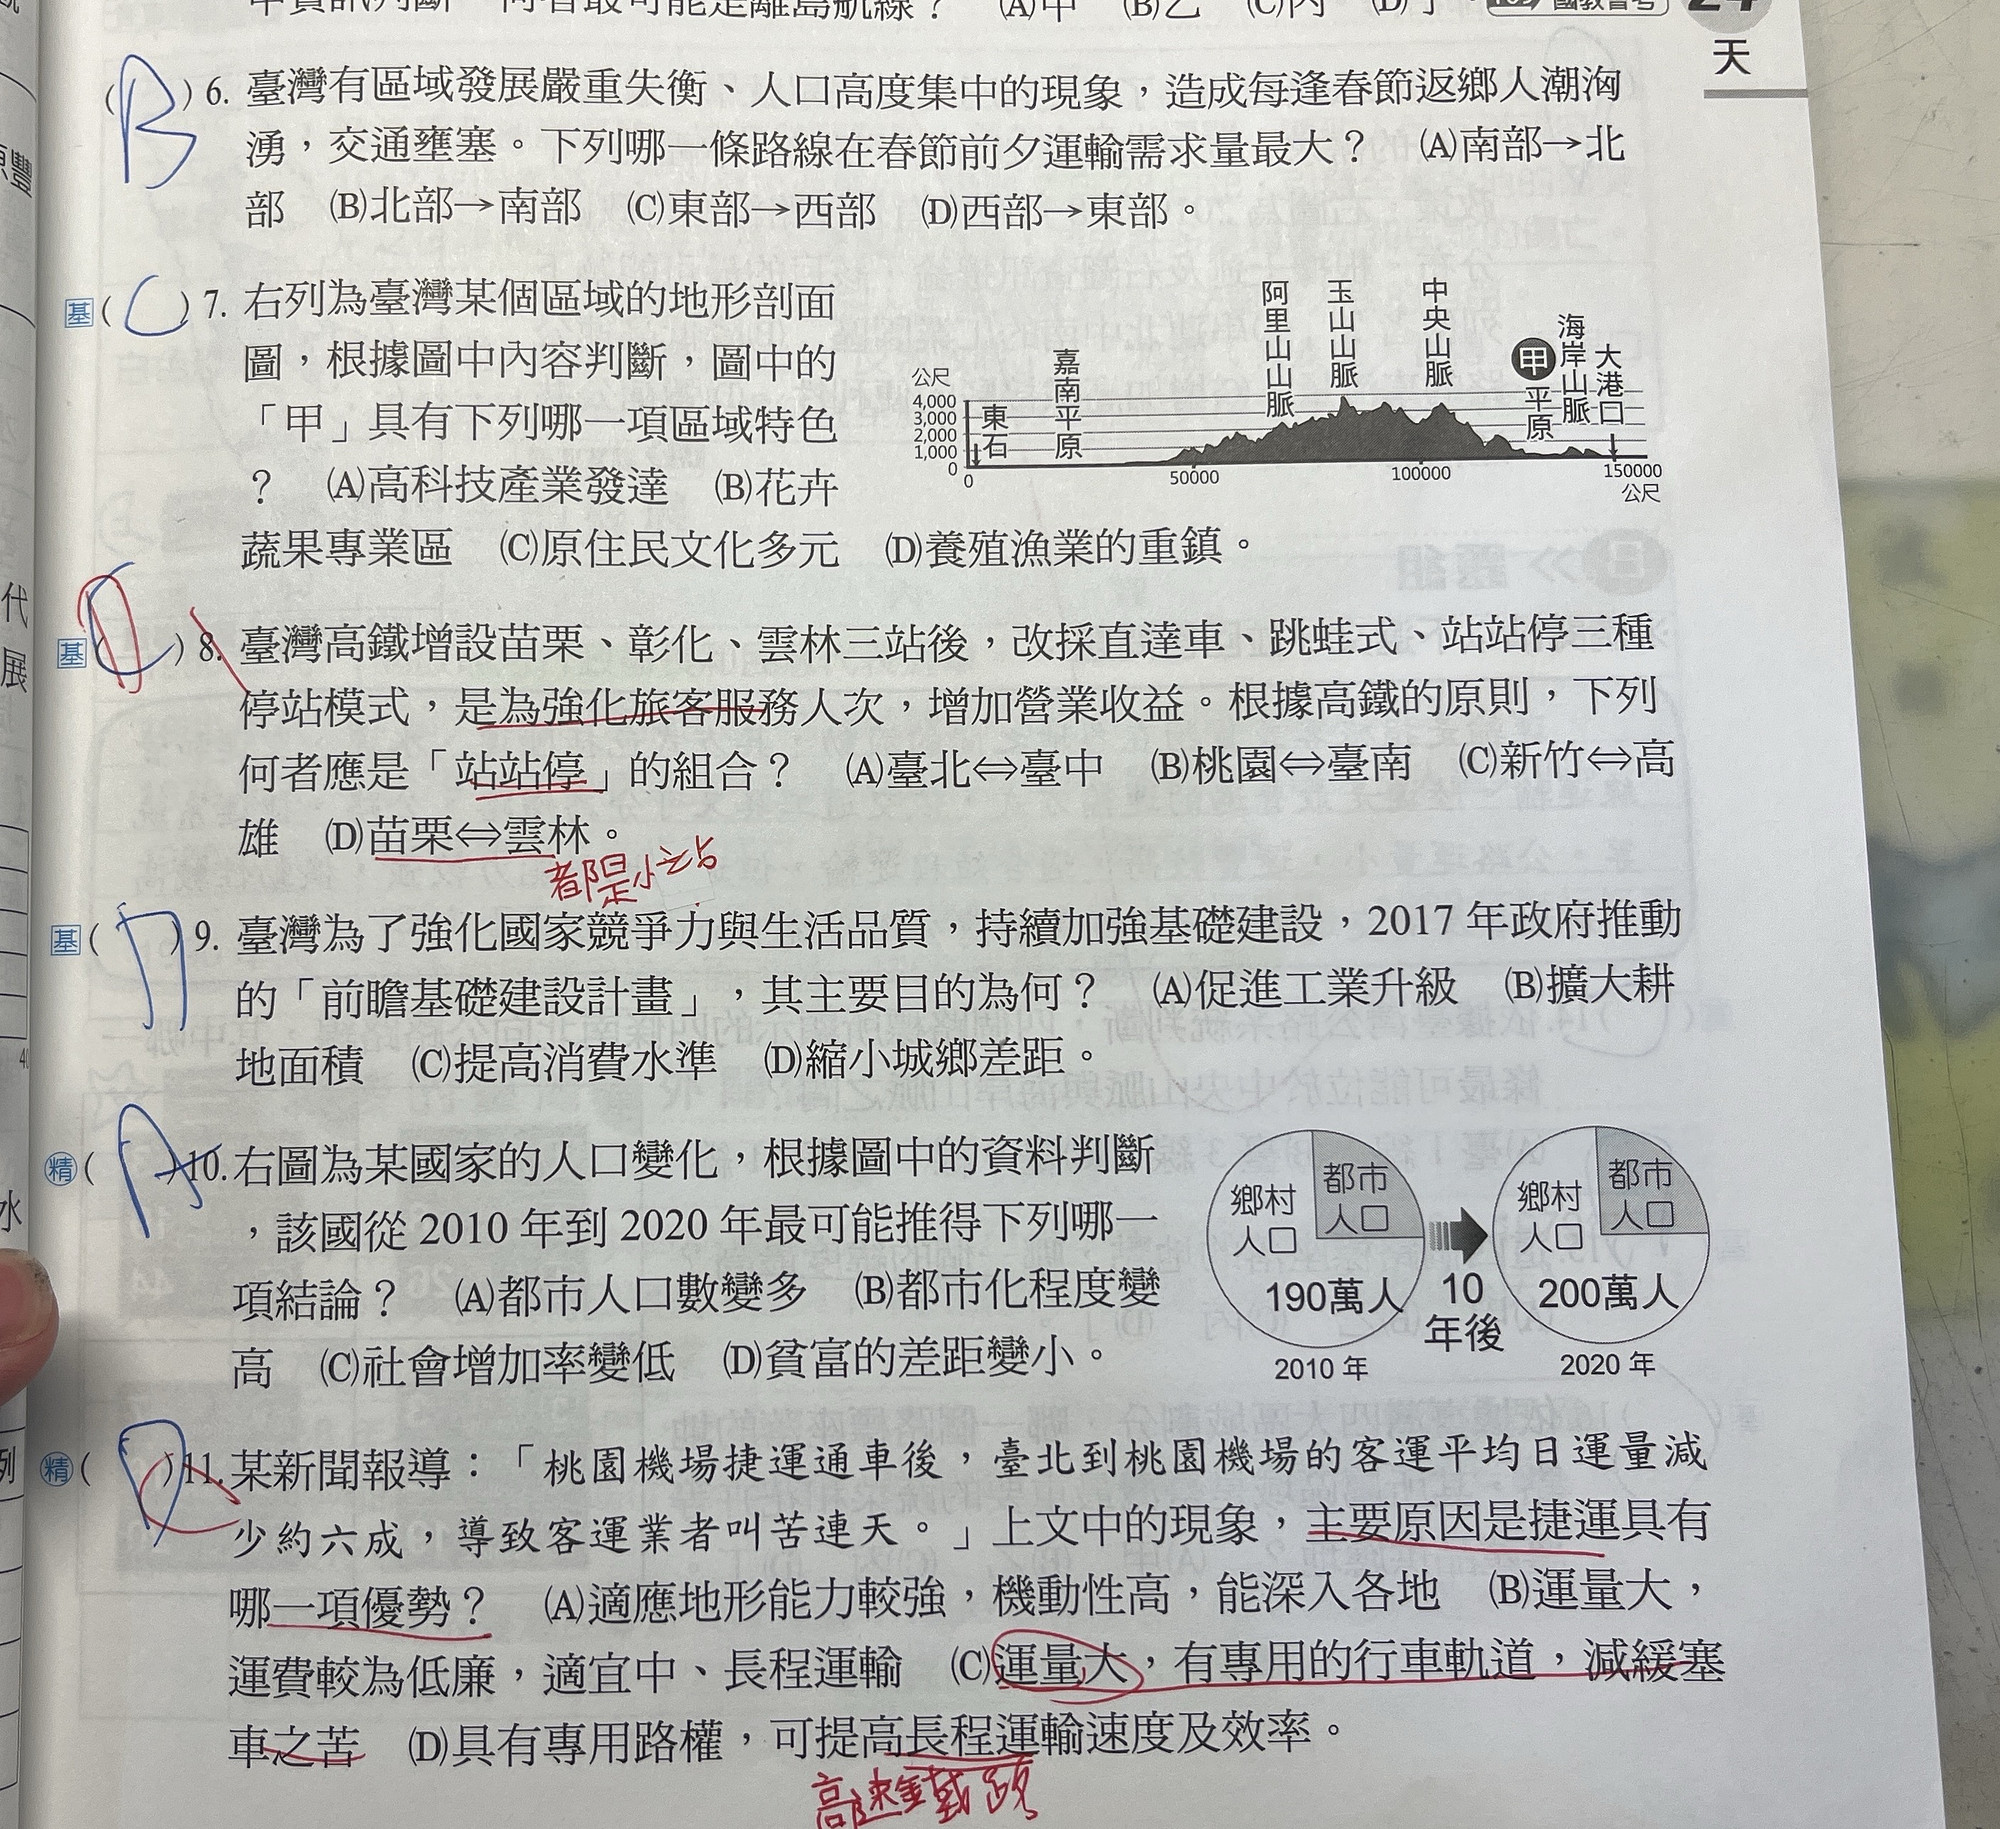 甲資訊判斷，何者最可能是離島航線？　(A)甲　(B)乙　(C)丙　(D)丁。
24
天
(B) 6. 臺灣有區域發展嚴重失衡、人口高度集中的現象，造成每逢春節返鄉人潮洶
湧，交通壅塞。下列哪一條路線在春節前夕運輸需求量最大？　(A)南部→北
部　(B)北部→南部　(C)東部→西部　(D)西部→東部。
基 (C) 7. 右列為臺灣某個區域的地形剖面
圖，根據圖中內容判斷，圖中的
「甲」具有下列哪一項區域特色
？　(A)高科技產業發達　(B)花卉
蔬果專業區　(C)原住民文化多元　(D)養殖漁業的重鎮。
公尺
4,000
3,000
2,000
1,000
0
東石
嘉南平原
阿里山山脈
玉山山脈
中央山脈
甲平原
海岸山脈
大港口
0
50000
100000
150000
公尺
基 (D) 8. 臺灣高鐵增設苗栗、彰化、雲林三站後，改採直達車、跳蛙式、站站停三種
停站模式，是為強化旅客服務人次，增加營業收益。根據高鐵的原則，下列
何者應是「站站停」的組合？　(A)臺北⇔臺中　(B)桃園⇔臺南　(C)新竹⇔高
雄　(D)苗栗⇔雲林。
都是小站
基 (D) 9. 臺灣為了強化國家競爭力與生活品質，持續加強基礎建設，2017 年政府推動
的「前瞻基礎建設計畫」，其主要目的為何？　(A)促進工業升級　(B)擴大耕
地面積　(C)提高消費水準　(D)縮小城鄉差距。
精 (A) 10. 右圖為某國家的人口變化，根據圖中的資料判斷
，該國從 2010 年到 2020 年最可能推得下列哪一
項結論？　(A)都市人口數變多　(B)都市化程度變
高　(C)社會增加率變低　(D)貧富的差距變小。
鄉村人口
都市人口
190萬人
2010 年
10年後
鄉村人口
都市人口
200萬人
2020 年
精 (D) 11. 某新聞報導：「桃園機場捷運通車後，臺北到桃園機場的客運平均日運量減
少約六成，導致客運業者叫苦連天。」上文中的現象，主要原因是捷運具有
哪一項優勢？　(A)適應地形能力較強，機動性高，能深入各地　(B)運量大，
運費較為低廉，適宜中、長程運輸　(C)運量大，有專用的行車軌道，減緩塞
車之苦　(D)具有專用路權，可提高長程運輸速度及效率。
高速鐵路